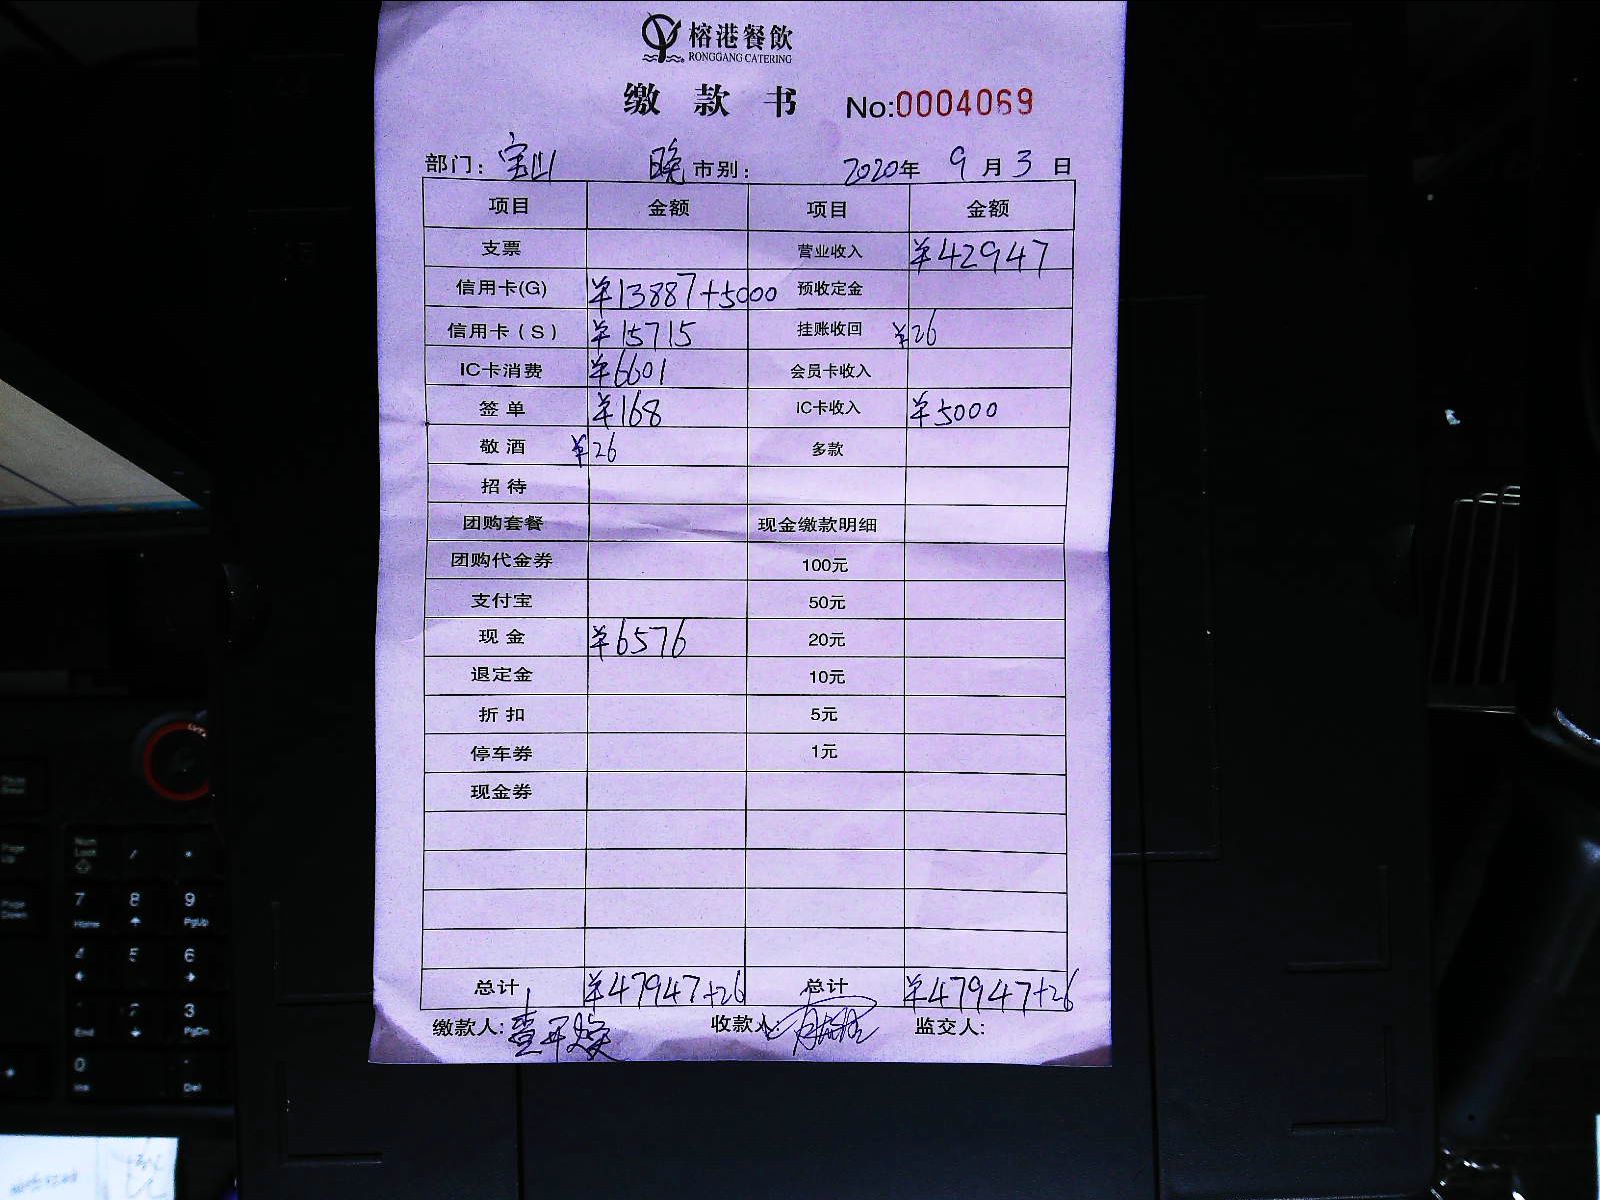 榕港餐飲
RONGGANG CATERING
缴款书 No:0004069
部门: 宝山 晚市别: 2020年9月3日
项目 金额 项目 金额
支票 营业收入 ¥42947
信用卡(G) ¥13887+5000 预收定金
信用卡(S) ¥15715 挂账收回 ¥26
IC卡消费 ¥6601 会员卡收入
签单 ¥168 IC卡收入 ¥5000
敬酒 ¥26 多款
招待
团购套餐 现金缴款明细
团购代金券 100元
支付宝 50元
现金 ¥6576 20元
退定金 10元
折扣 5元
停车券 1元
现金券
总计 ¥47947+26 总计 ¥47947+26
缴款人: 收款人: 监交人:
Num Lock / *
7 8 9
Home PgUp
4 5 6
3
End PgDn
0
Ins Del
Page Up
Page Down